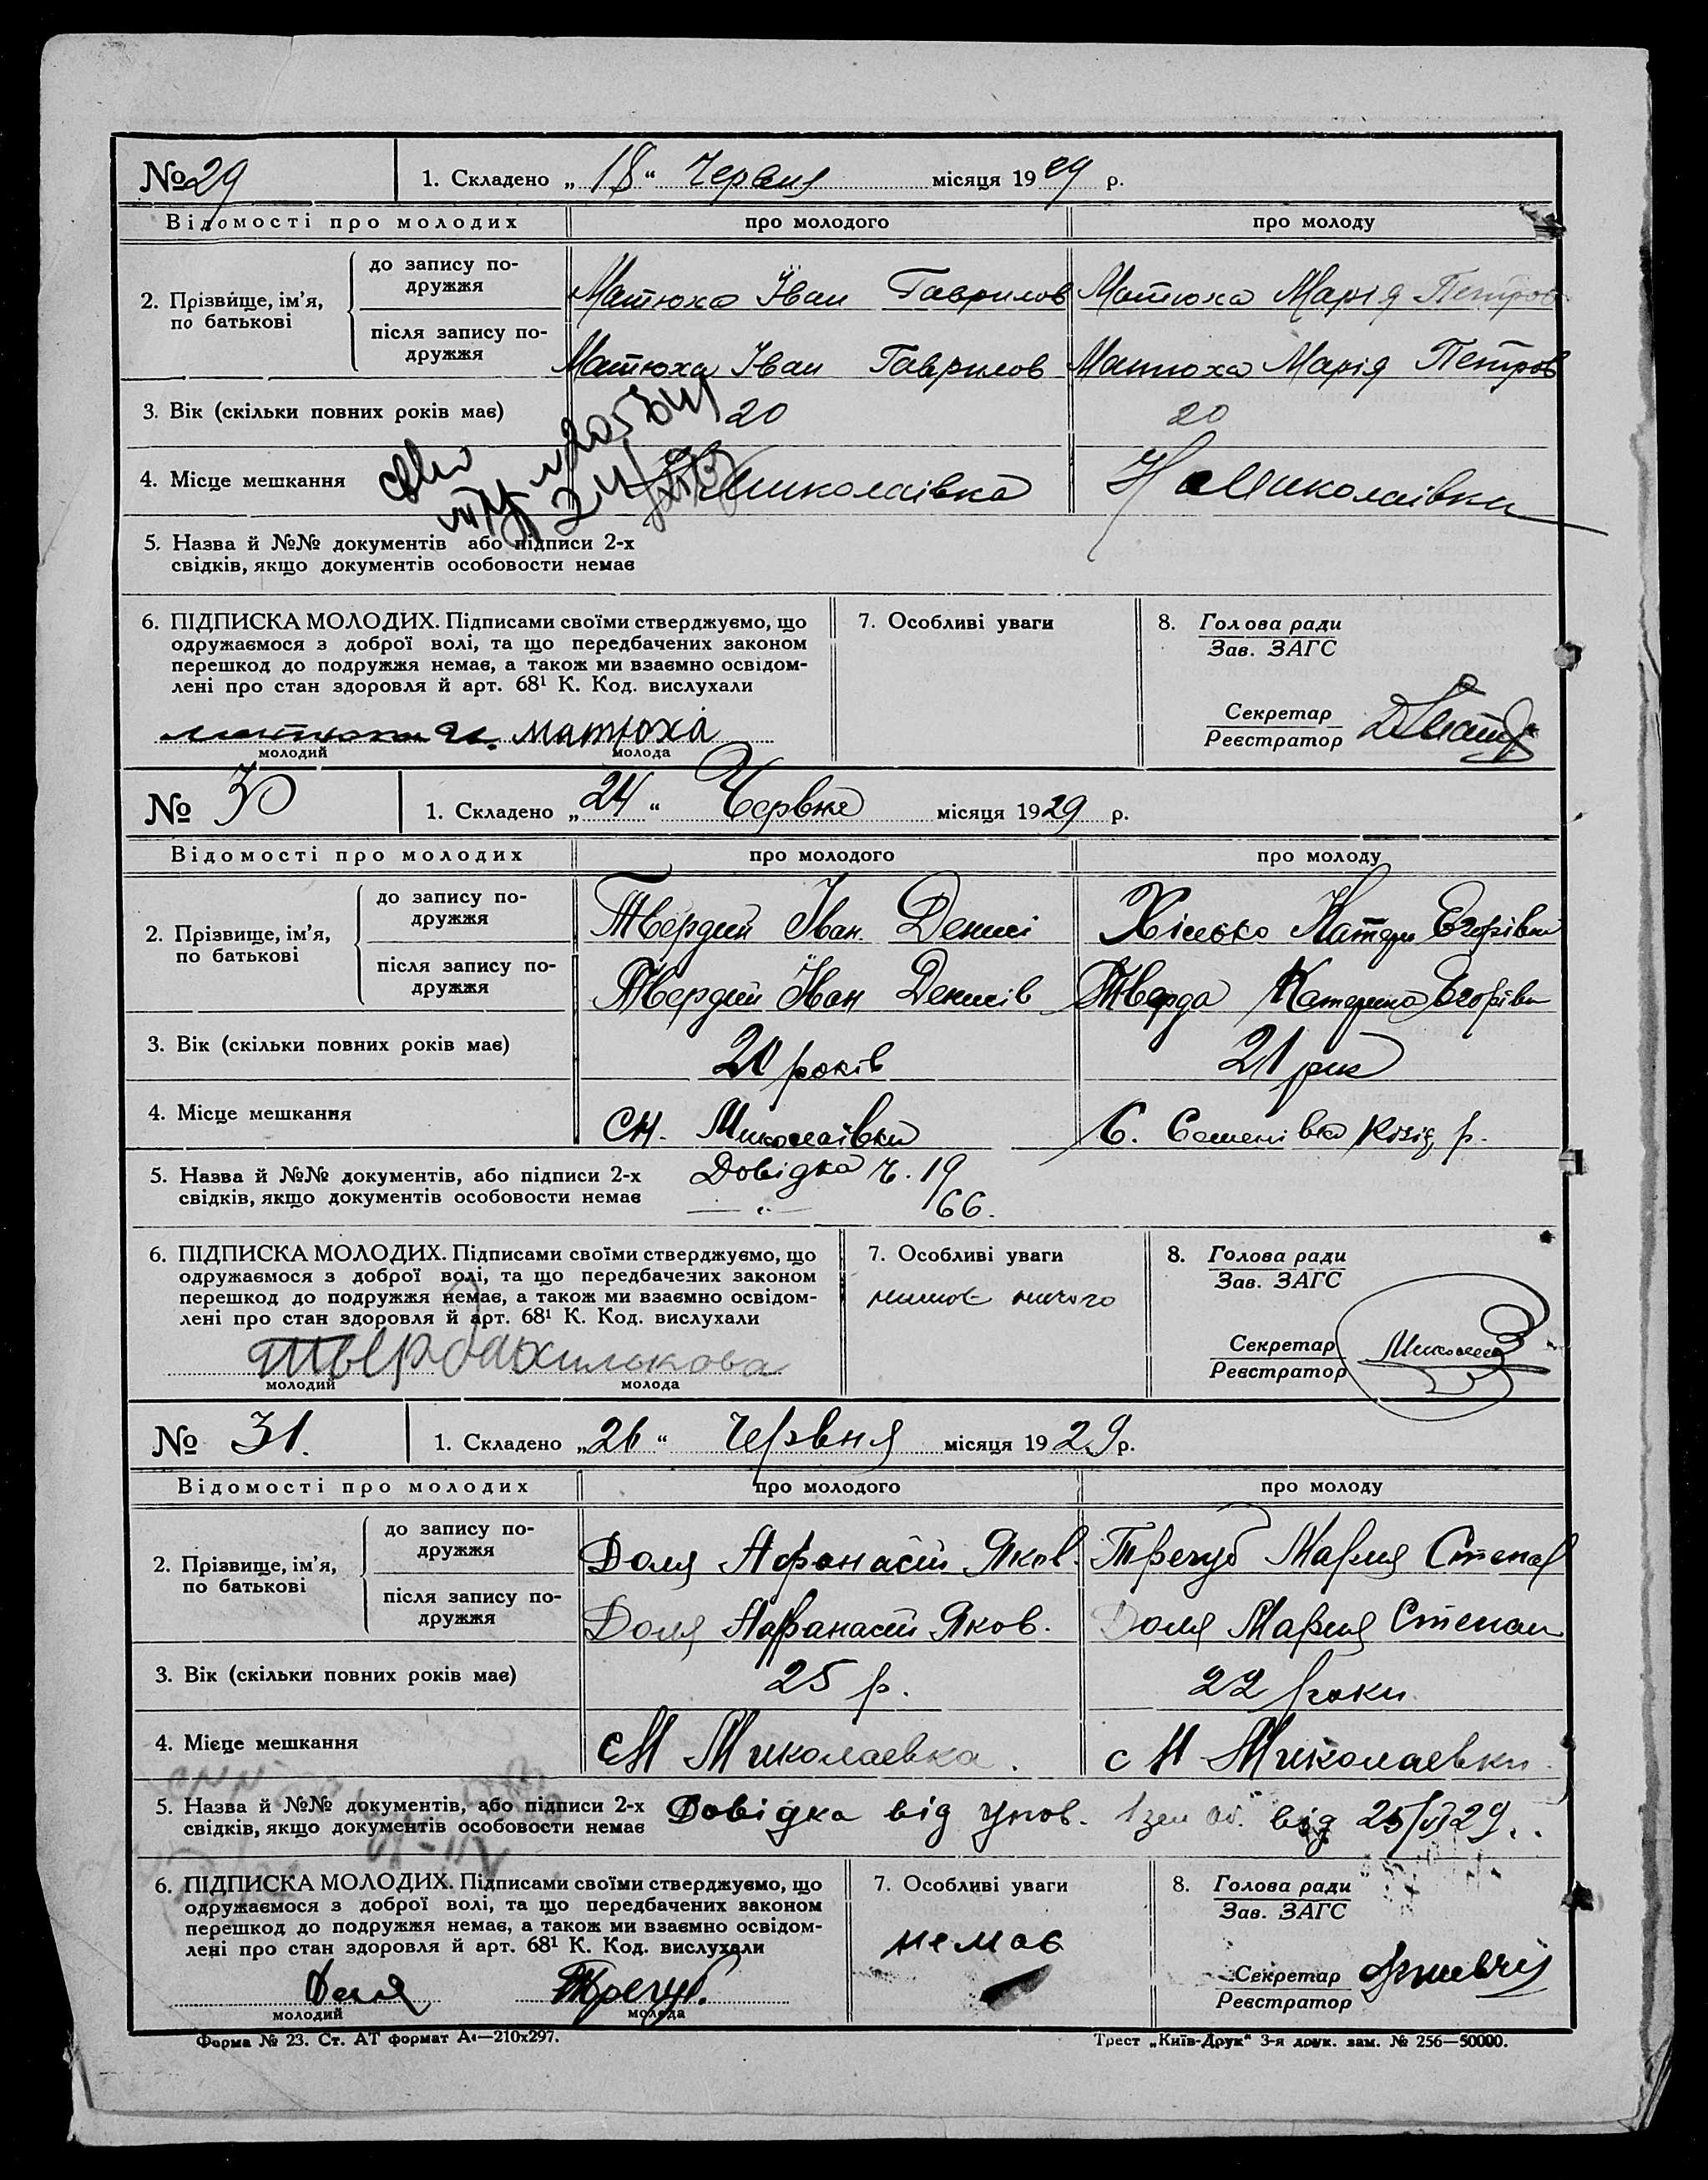 № 29 1. Складено „18“ Червня місяця 1929 р.
Відомості про молодих про молодого про молоду
2. Прізвище, ім’я, по батькові
до запису подружжя Матюха Іван Гаврилов Матюха Марія Петров
після запису подружжя Матюха Іван Гаврилов Матюха Марія Петров
3. Вік (скільки повних років має) 20 20
4. Місце мешкання Миколаівка Миколаівка
5. Назва й №№ документів або підписи 2-х
свідків, якщо документів особовости немає
6. ПІДПИСКА МОЛОДИХ. Підписами своїми стверджуємо, що 7. Особливі уваги 8. Голова ради
одружаємося з доброї волі, та що передбачених законом Зав. ЗАГС
перешкод до подружжя немає, а також ми взаємно освідом-
лені про стан здоровля й арт. 68¹ К. Код. вислухали
Секретар
Реєстратор
матюха
молодий молода
№ 30 1. Складено „24“ Червня місяця 1929 р.
Відомості про молодих про молодого про молоду
2. Прізвище, ім’я, по батькові
до запису подружжя Твердий Іван Денисі Хілько Катери Єгорівна
після запису подружжя Твердий Іван Денисів Тверда Катерина Єгорівн
3. Вік (скільки повних років має) 20 років 21 рик
4. Місце мешкання см. Миколаївки С. Семенівка Козіл, р.
5. Назва й №№ документів, або підписи 2-х Довідка ч. 19
свідків, якщо документів особовости немає —„— 66.
6. ПІДПИСКА МОЛОДИХ. Підписами своїми стверджуємо, що 7. Особливі уваги 8. Голова ради
одружаємося з доброї волі, та що передбачених законом Зав. ЗАГС
перешкод до подружжя немає, а також ми взаємно освідом- ничого
лені про стан здоровля й арт. 68¹ К. Код. вислухали
Секретар
Реєстратор
Твердий хилькова
молодий молода
№ 31. 1. Складено „26“ Червня місяця 1929 р.
Відомості про молодих про молодого про молоду
2. Прізвище, ім’я, по батькові
до запису подружжя Доля Афонасій Яков. Трегуб Мария Степан
після запису подружжя Доля Афанасій Яков. Доля Мария Степан
3. Вік (скільки повних років має) 25 р. 22 роки
4. Місце мешкання см Миколаевка. с М Миколаевки.
5. Назва й №№ документів, або підписи 2-х Довідка від упов. від 25/VI 29.
свідків, якщо документів особовости немає
6. ПІДПИСКА МОЛОДИХ. Підписами своїми стверджуємо, що 7. Особливі уваги 8. Голова ради
одружаємося з доброї волі, та що передбачених законом Зав. ЗАГС
перешкод до подружжя немає, а також ми взаємно освідом- немає
лені про стан здоровля й арт. 68¹ К. Код. вислухали
Секретар
Реєстратор
Доля Трегуб.
молодий молода
Форма № 23. Ст. АТ формат А₄—210х297. Трест „Київ-Друк“ 3-я друк. зам. № 256—50000.